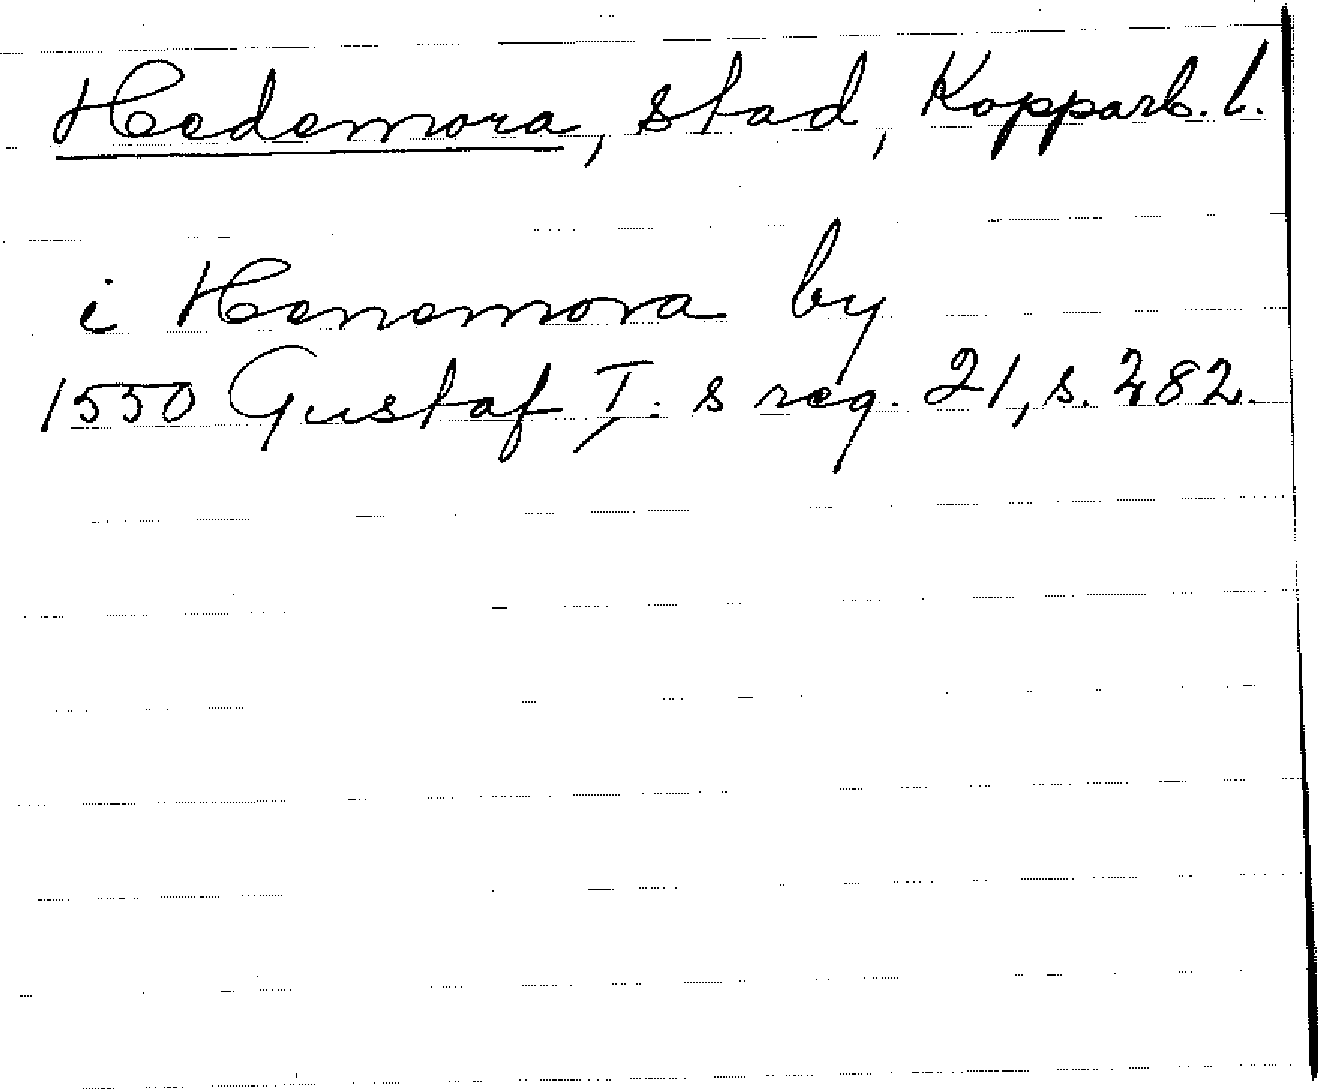 Hedemora, stad, Kopparb. l.
i Henemora by
1550 Gustaf I. s reg. 21, s. 282.